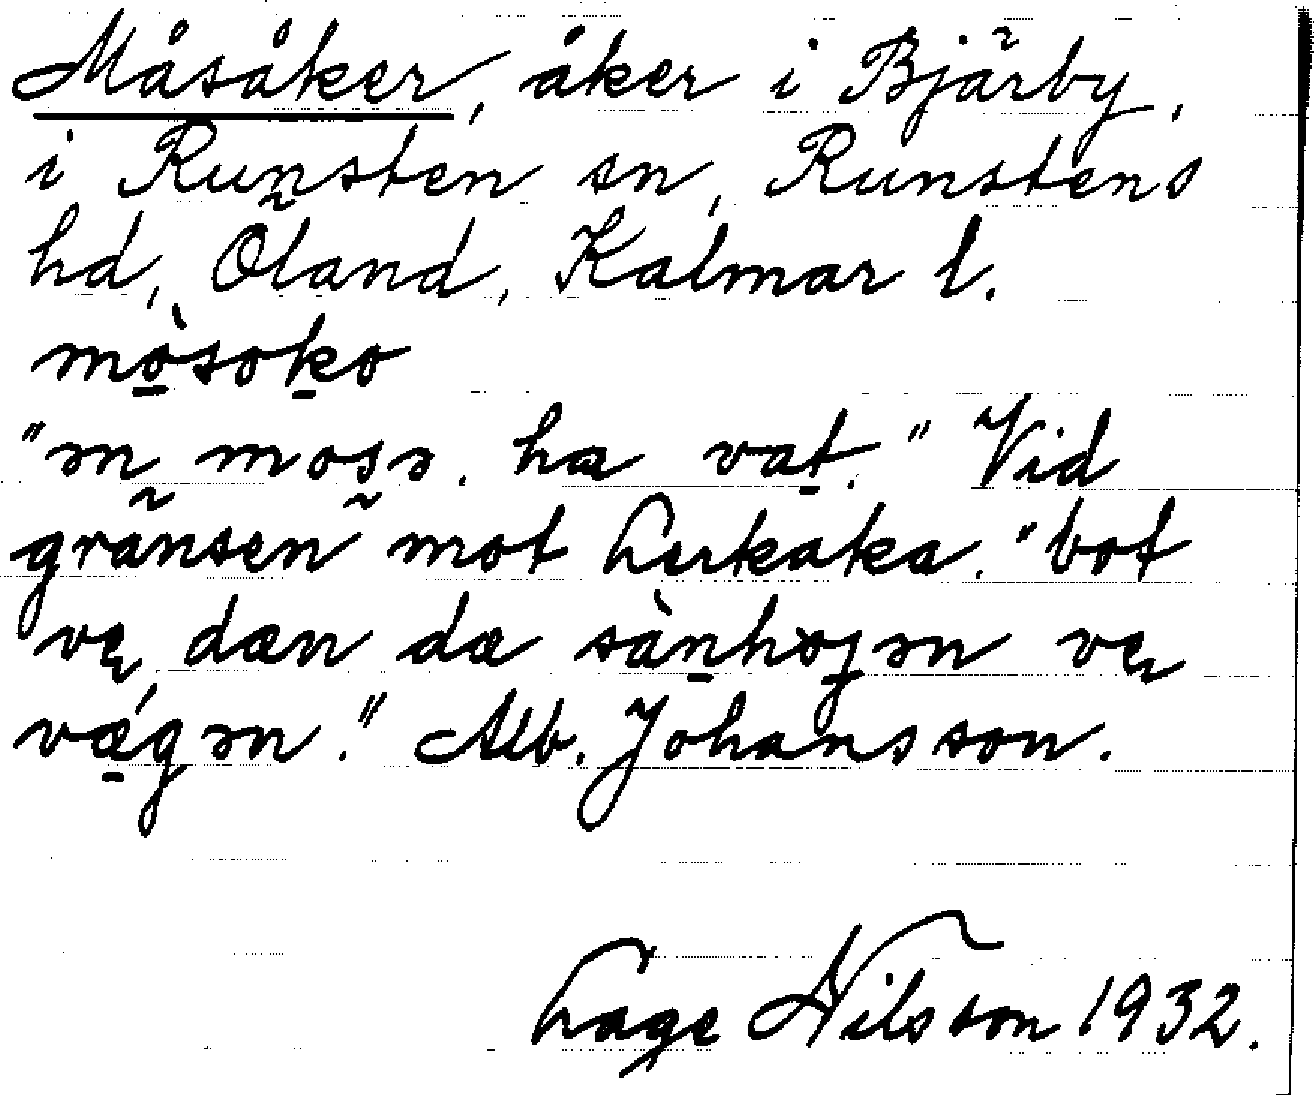 Måsåker, åker i Bjärby,
i Runsten sn, Runstens
hd, Öland, Kalmar l.
mòsoko
"ən mosə. ha vat." Vid
gränsen mot Lerkaka. "bot
ve dæn dæ sànhojən ve
vǽgən." Alb. Johansson.
Lage Nilsson 1932.